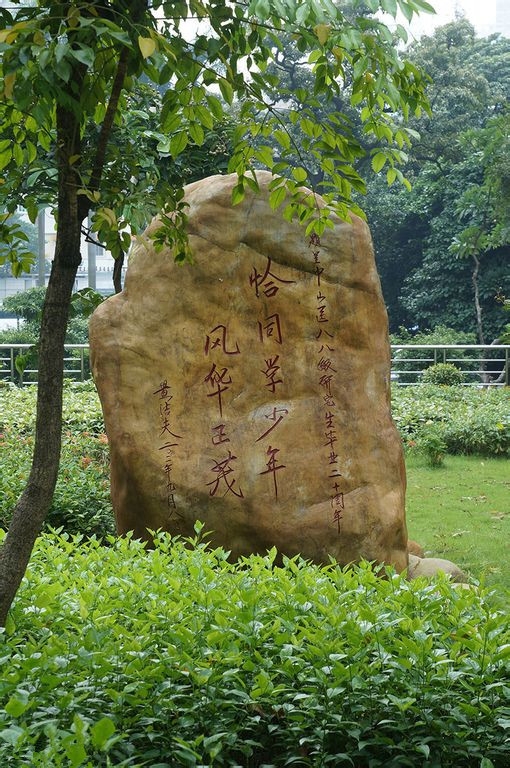 呈中山医八八级研究生毕业二十周年
恰同学少年
风华正茂
黄洁夫 年九月